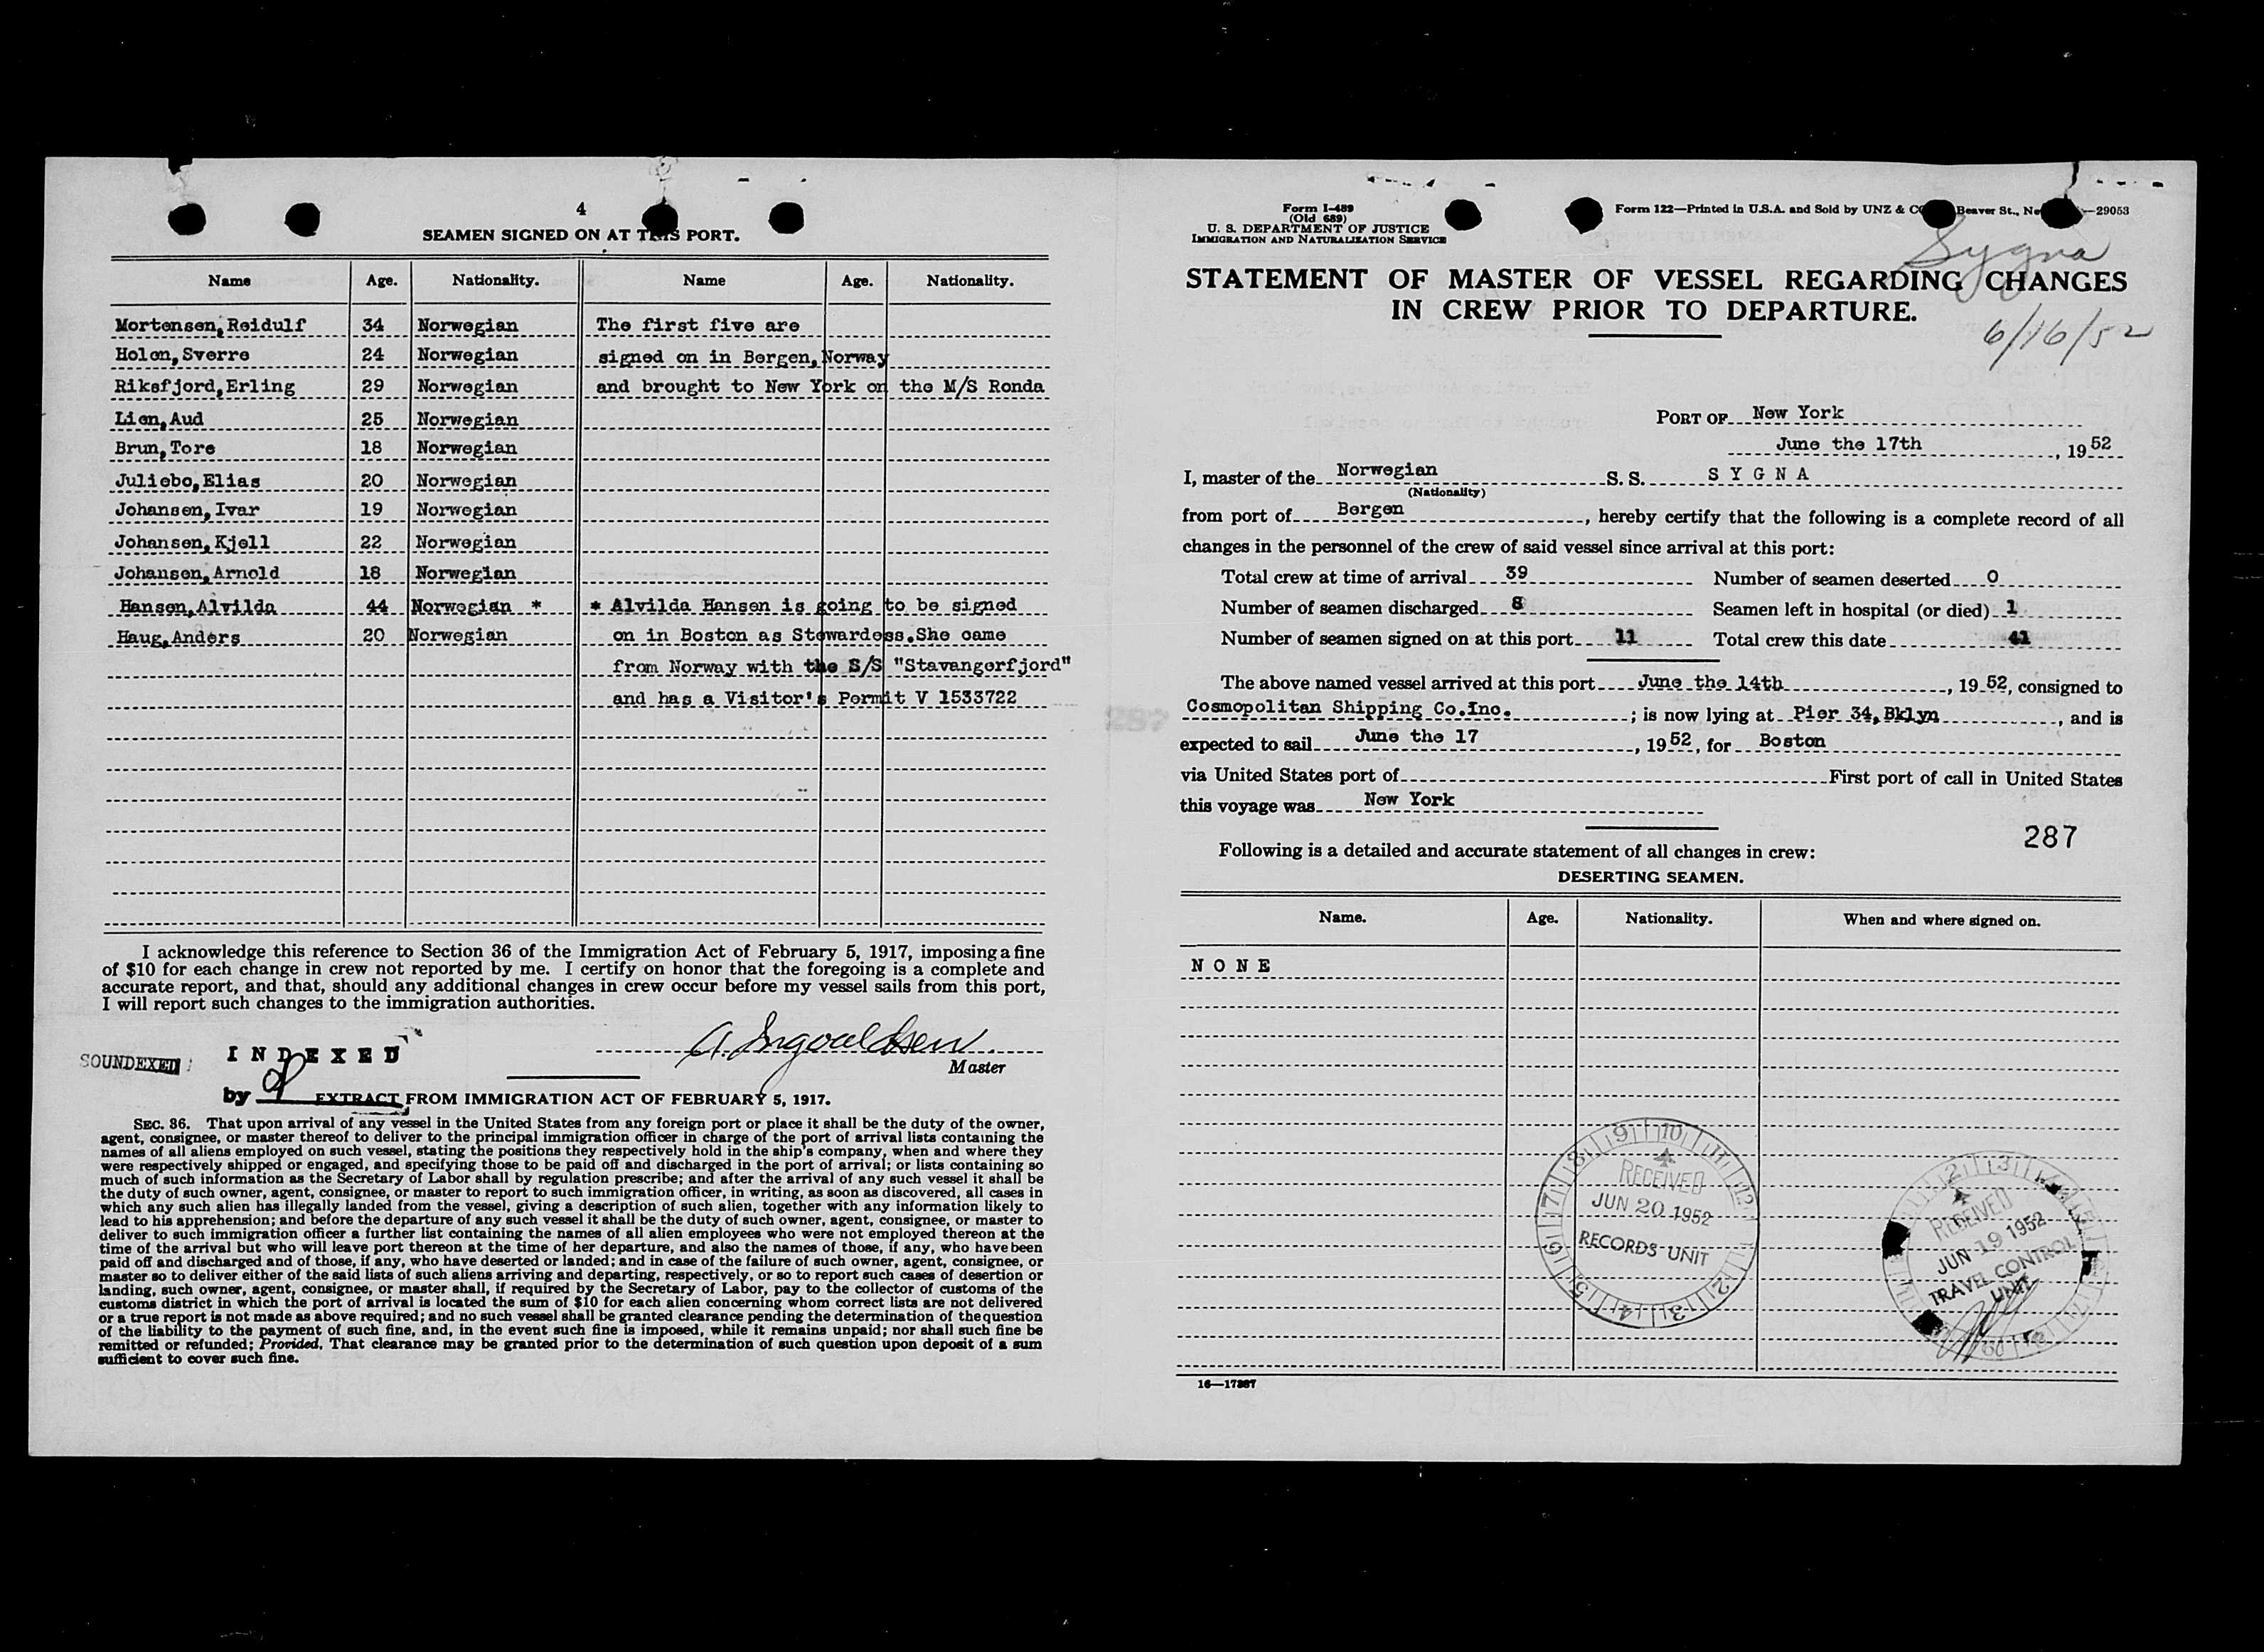 4
SEAMEN SIGNED ON AT THIS PORT.
Name Age. Nationality. Name Age. Nationality.
Mortensen,Reidulf 34 Norwegian The first five are
Holen,Sverre 24 Norwegian signed on in Bergen,Norway
Riksfjord,Erling 29 Norwegian and brought to New York on the M/S Ronda
Lien,Aud 25 Norwegian
Brun,Tore 18 Norwegian
Juliebo,Elias 20 Norwegian
Johansen,Ivar 19 Norwegian
Johansen,Kjell 22 Norwegian
Johansen,Arnold 18 Norwegian
Hansen,Alvilda 44 Norwegian * * Alvilda Hansen is going to be signed
Haug,Anders 20 Norwegian on in Boston as Stewardess.She came
from Norway with the S/S "Stavangerfjord"
and has a Visitor's Permit V 1533722
I acknowledge this reference to Section 36 of the Immigration Act of February 5, 1917, imposing a fine
of $10 for each change in crew not reported by me. I certify on honor that the foregoing is a complete and
accurate report, and that, should any additional changes in crew occur before my vessel sails from this port,
I will report such changes to the immigration authorities.
A. Ingvaldsen
Master
SOUNDEXED
INDEXED
by
EXTRACT FROM IMMIGRATION ACT OF FEBRUARY 5, 1917.
SEC. 36. That upon arrival of any vessel in the United States from any foreign port or place it shall be the duty of the owner,
agent, consignee, or master thereof to deliver to the principal immigration officer in charge of the port of arrival lists containing the
names of all aliens employed on such vessel, stating the positions they respectively hold in the ship's company, when and where they
were respectively shipped or engaged, and specifying those to be paid off and discharged in the port of arrival; or lists containing so
much of such information as the Secretary of Labor shall by regulation prescribe; and after the arrival of any such vessel it shall be
the duty of such owner, agent, consignee, or master to report to such immigration officer, in writing, as soon as discovered, all cases in
which any such alien has illegally landed from the vessel, giving a description of such alien, together with any information likely to
lead to his apprehension; and before the departure of any such vessel it shall be the duty of such owner, agent, consignee, or master to
deliver to such immigration officer a further list containing the names of all alien employees who were not employed thereon at the
time of the arrival but who will leave port thereon at the time of her departure, and also the names of those, if any, who have been
paid off and discharged and of those, if any, who have deserted or landed; and in case of the failure of such owner, agent, consignee, or
master so to deliver either of the said lists of such aliens arriving and departing, respectively, or so to report such cases of desertion or
landing, such owner, agent, consignee, or master shall, if required by the Secretary of Labor, pay to the collector of customs of the
customs district in which the port of arrival is located the sum of $10 for each alien concerning whom correct lists are not delivered
or a true report is not made as above required; and no such vessel shall be granted clearance pending the determination of the question
of the liability to the payment of such fine, and, in the event such fine is imposed, while it remains unpaid; nor shall such fine be
remitted or refunded; Provided, That clearance may be granted prior to the determination of such question upon deposit of a sum
sufficient to cover such fine.
Form I-489
(Old 689)
U. S. DEPARTMENT OF JUSTICE
IMMIGRATION AND NATURALIZATION SERVICE
Form 122—Printed in U.S.A. and Sold by UNZ & CO Beaver St., Ne —29053
Sygna
STATEMENT OF MASTER OF VESSEL REGARDING CHANGES
IN CREW PRIOR TO DEPARTURE.
6/16/52
PORT OF New York
June the 17th , 1952
I, master of the Norwegian S. S. S Y G N A
(Nationality)
from port of Bergen , hereby certify that the following is a complete record of all
changes in the personnel of the crew of said vessel since arrival at this port:
Total crew at time of arrival 39 Number of seamen deserted 0
Number of seamen discharged 8 Seamen left in hospital (or died) 1
Number of seamen signed on at this port 11 Total crew this date 41
The above named vessel arrived at this port June the 14th , 1952, consigned to
Cosmopolitan Shipping Co.Inc. ; is now lying at Pier 34,Bklyn , and is
expected to sail June the 17 , 1952, for Boston
via United States port of First port of call in United States
this voyage was New York
287
Following is a detailed and accurate statement of all changes in crew:
DESERTING SEAMEN.
Name. Age. Nationality. When and where signed on.
N O N E
RECEIVED
JUN 20 1952
RECORDS UNIT
RECEIVED
JUN 19 1952
TRAVEL CONTROL
UNIT
16—17387